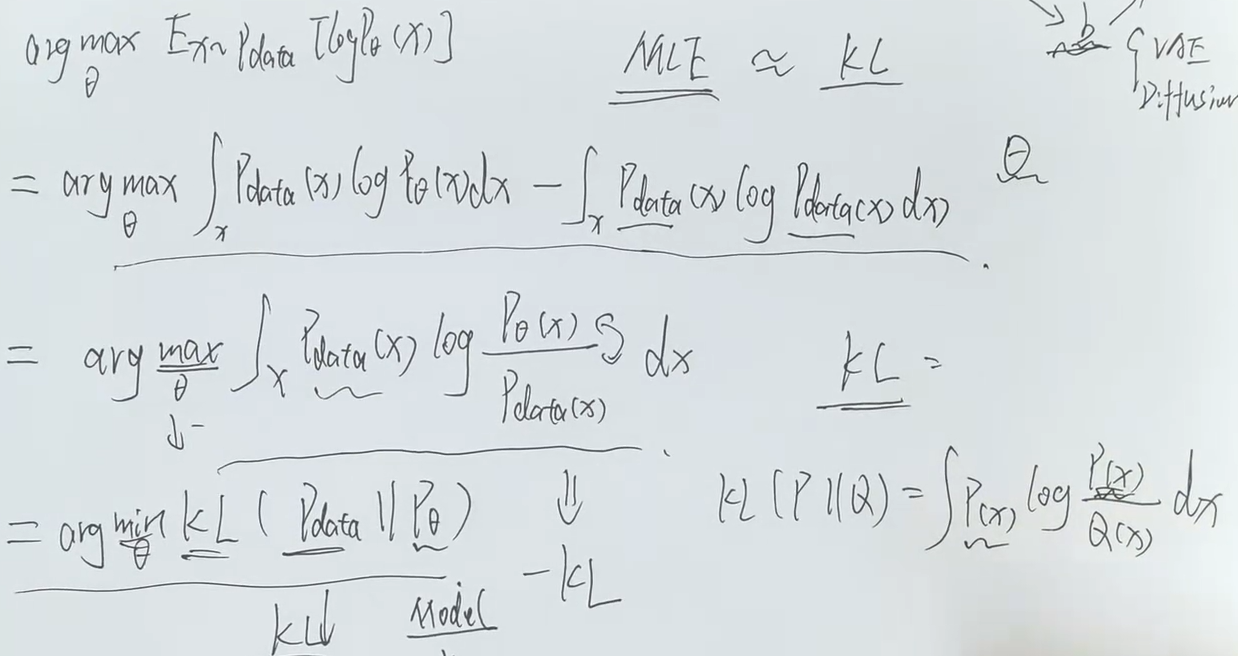 arg max_θ E_{x~Pdata} [log P_θ(x)]
MLE ≈ KL
{ VAE
Diffusion
= arg max_θ ∫_x Pdata(x) log P_θ(x) dx - ∫_x Pdata(x) log Pdata(x) dx)
θ
= arg max_θ ∫_x Pdata(x) log P_θ(x) / Pdata(x) dx
KL =
↓-
= arg min_θ KL ( Pdata || P_θ )
⇓
KL (P || Q) = ∫ P(x) log P(x) / Q(x) dx
- KL
KL↓ Model